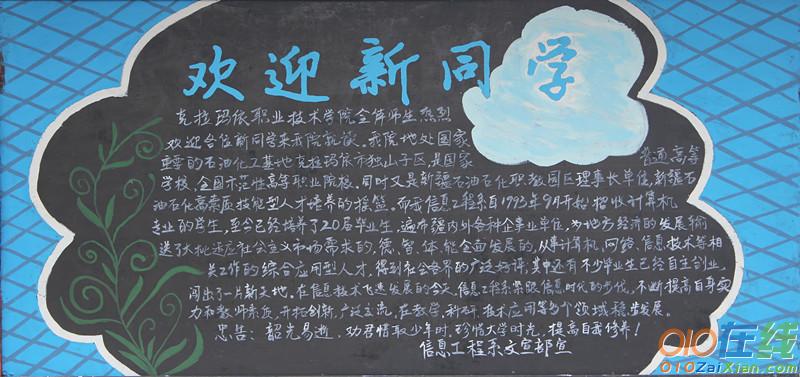 欢迎新同学
克拉玛依职业技术学院全体师生热烈
欢迎各位新同学来我院就读。我院地处国家
重要的石油化工基地克拉玛依市独山子区,是国家
普通高等
学校,全国示范性高等职业院校。同时又是新疆石油石化职教园区理事长单位,新疆石
油石化高素质技能型人才培养的摇篮。而我信息工程系自1993年9月开始招收计算机
专业的学生,至今已经培养了20届毕业生,遍布疆内外各种企事业单位,为地方经济的发展输
送了大批适应社会主义市场需求的,德、智、体、能全面发展的,从事计算机、网络、信息技术等相
关工作的综合应用型人才,得到社会各界的广泛好评,其中还有不少毕业生已经自主创业,
闯出了一片新天地。在信息技术飞速发展的今天,信息工程系紧跟信息时代的步伐,不断提高自身实
力和教师素质,开拓创新,广泛交流,在教学、科研、技术应用等多个领域稳步发展。
忠告:韶光易逝,劝君惜取少年时,珍惜大学时光,提高自我修养!
信息工程系文宣部宣
010在线
010ZaiXian.com